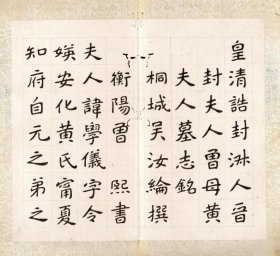 皇清誥封淋人晉
封夫人曾母黃
夫人墓志銘
桐城吳汝綸撰
衡陽曾熙書
夫人諱學儀字令
媖安化黃氏甯夏
知府自元之弟之